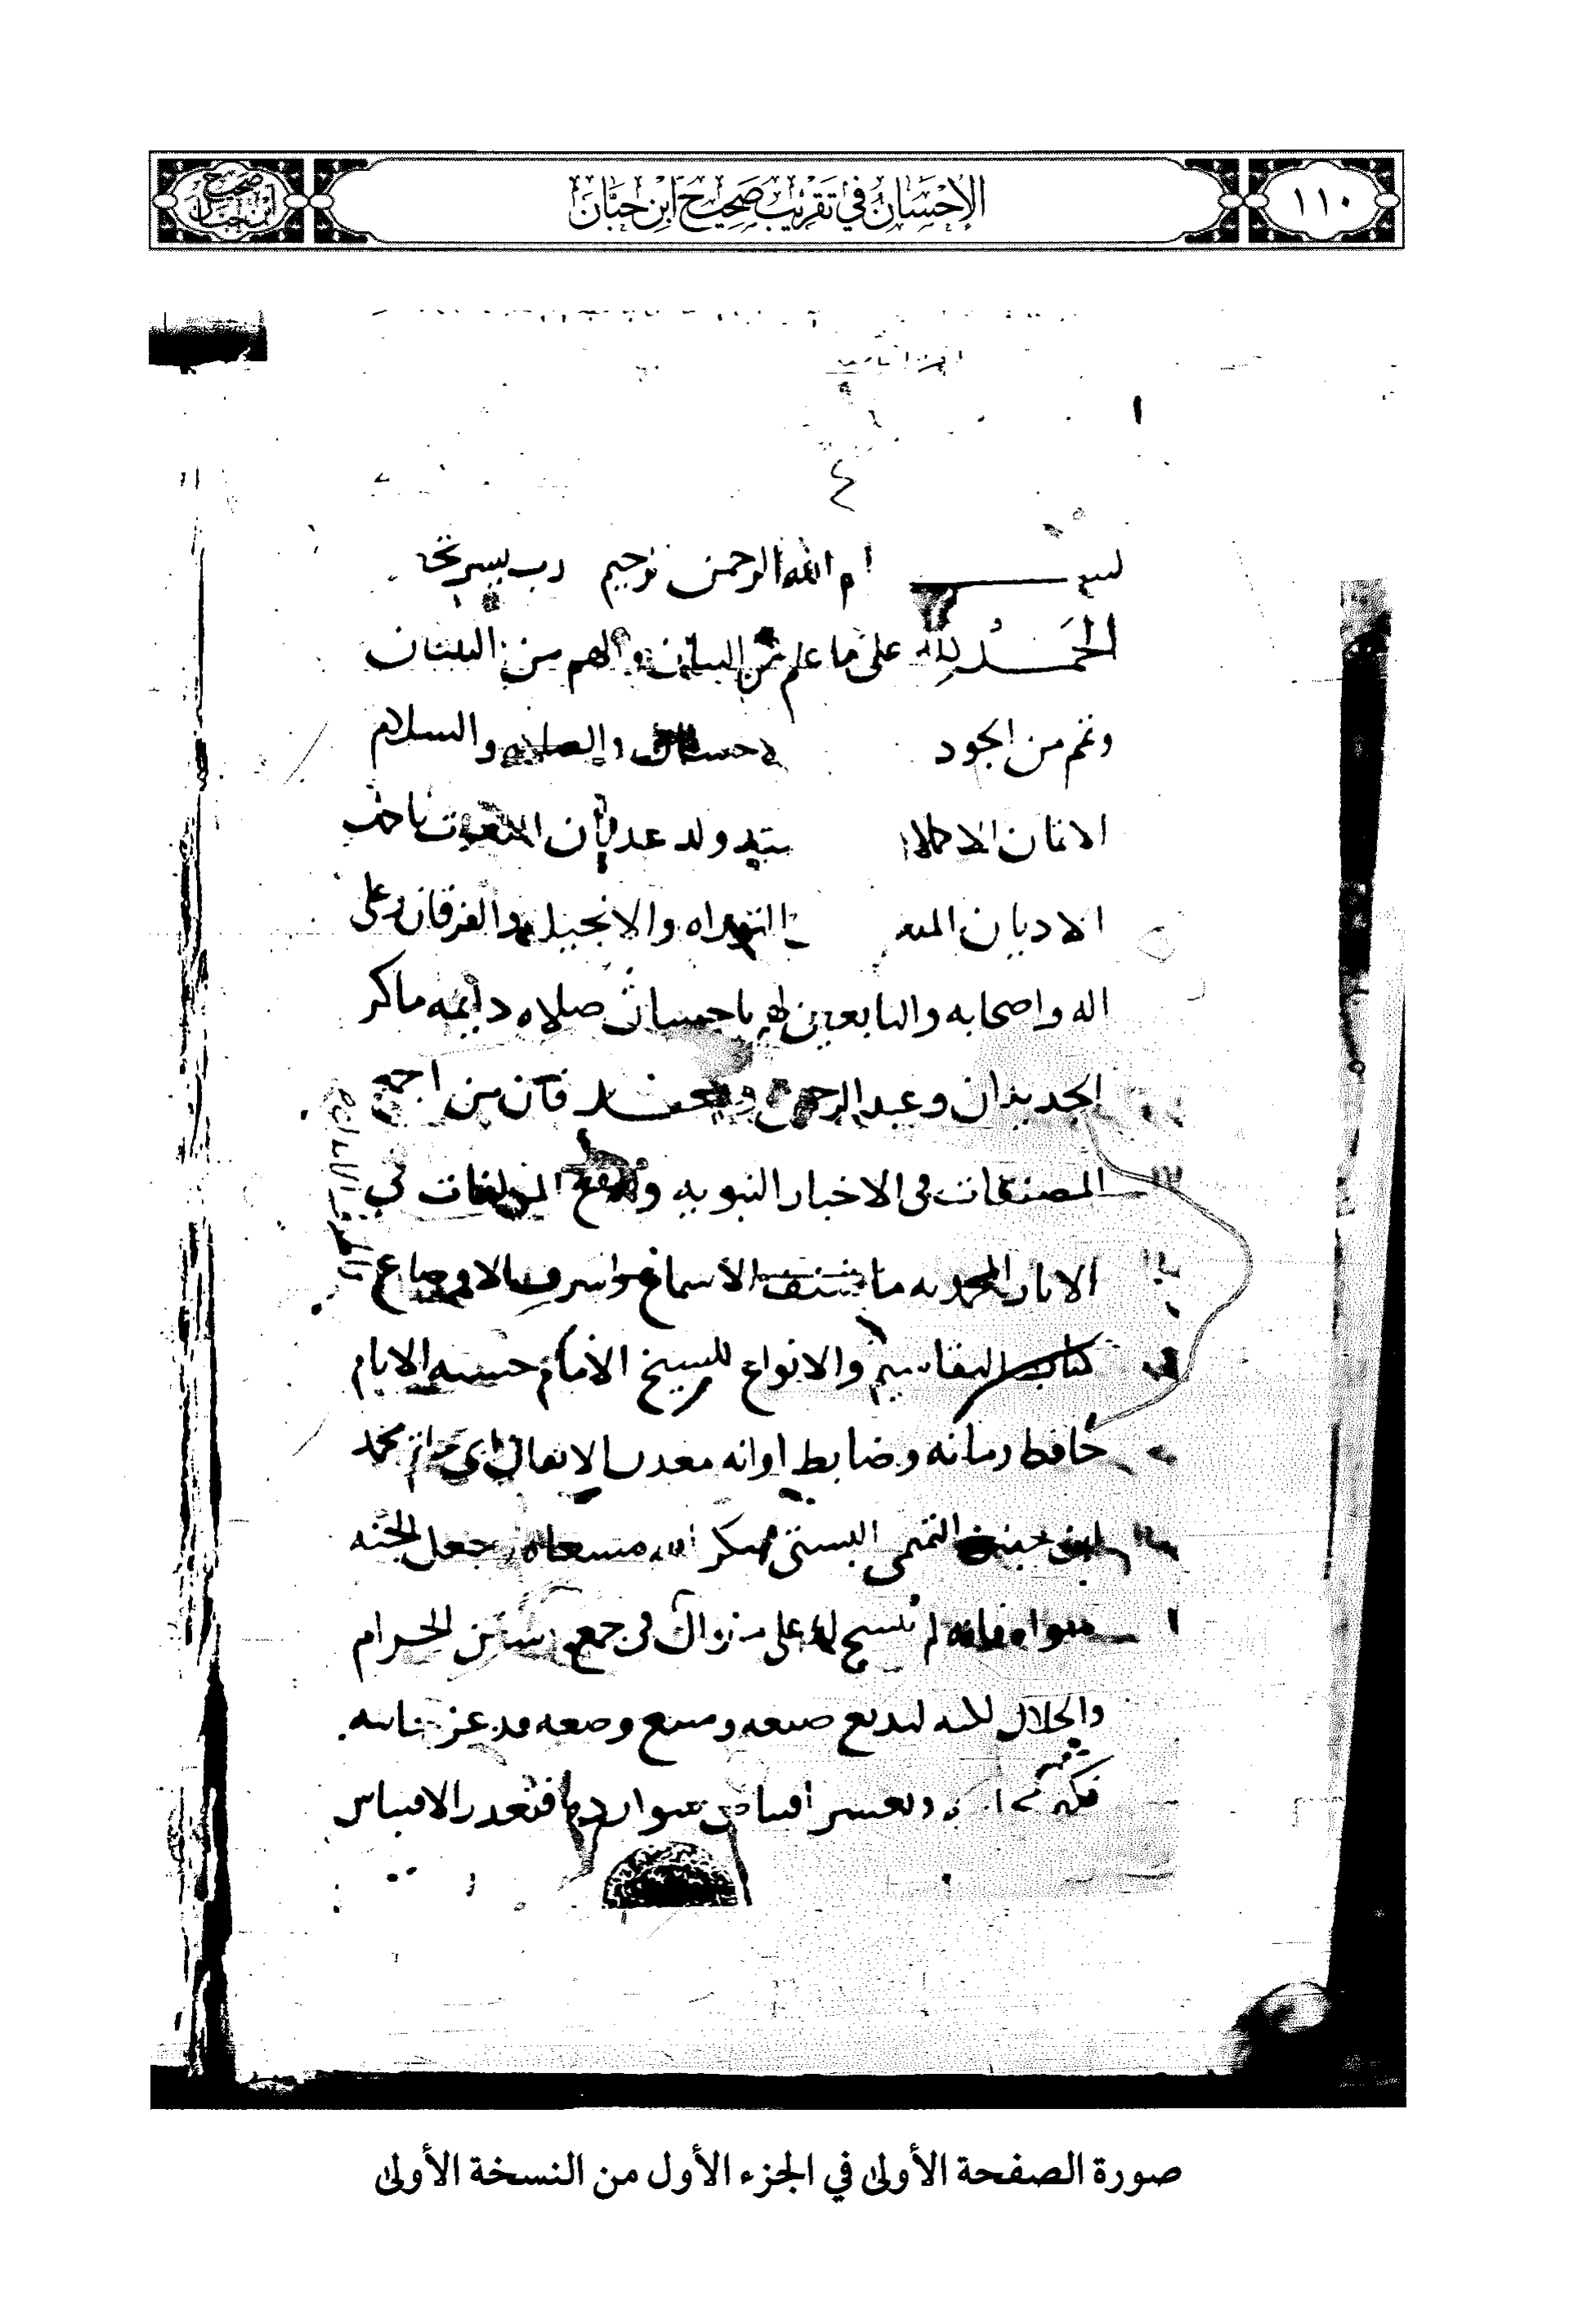 الإحسان في تقريب صحيح ابن حبان
١١٠
صحيح ابن حبان
٤
بسم الله الرحمن الرحيم رب يسر بخير
الحمد لله على ما علم من البيان والهم من التبيان
وتمم من الجود والاحسان والصلاه والسلام
الاتمان الاكملان سيد ولد عدنان المبعوث باكمل
الاديان المنعوت التوراه والانجيل والفرقان وعلى
اله واصحابه والتابعين لهم باحسان صلاه دايمه ما كر
الجديدان وعبد الرحمن وبعد فان من اجمع
المصنفات فى الاخبار النبويه وانفع المولفات فى
الاثار المحمديه ما شنف الاسماع
كتاب التقاسيم والانواع للشيخ الامام حسنه الايام
حافظ زمانه وضابط اوانه معدن الاتقان ابى حاتم محمد
ابن حبان التميمى البستى شكر الله مسعاه وجعل الجنه
مثواه فانه لم ينسج له على منوال فى جمع سنن الحرام
والحلال لكنه لبديع صنعه ومنيع وضعه قد عز جانبه
فكثر وتعسر اقتناص شوارده فتعذر الاقتباس
صورة الصفحة الأولى في الجزء الأول من النسخة الأولى